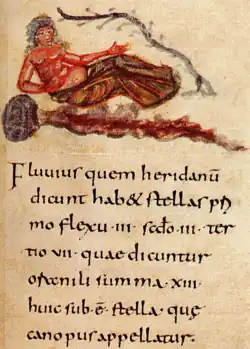 Fluuius quem heridanū
dicunt hab& stellas pri
mo flexu · III · scđo · III · ter
tio VII · quae dicuntur
summa · XIII ·
huic sub · ē · stella · quę
canopus appellatur ·